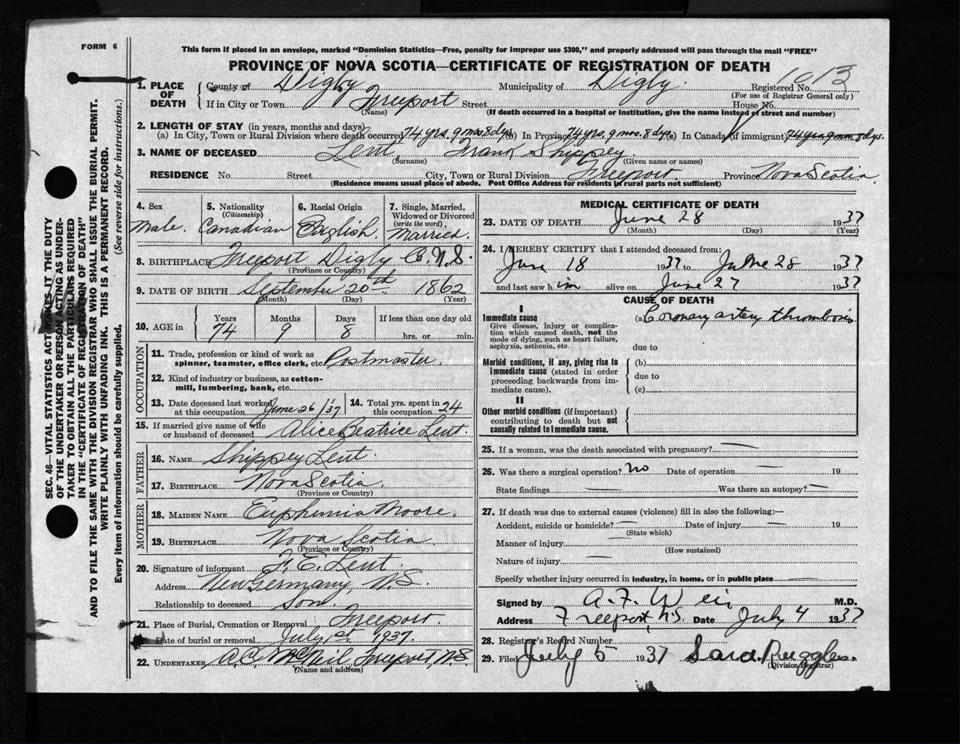 FORM 6
This form if placed in an envelope, marked "Dominion Statistics—Free, penalty for improper use $300," and properly addressed will pass through the mail "FREE"
PROVINCE OF NOVA SCOTIA—CERTIFICATE OF REGISTRATION OF DEATH
1. PLACE OF DEATH
County of Digby Municipality of Digby Registered No. 1013
(For use of Registrar General only)
If in City or Town Freeport Street House No.
(Name) (If death occurred in a hospital or institution, give the name instead of street and number)
2. LENGTH OF STAY (in years, months and days)—
(a) In City, Town or Rural Division where death occurred 74 yrs. 9 mos. 8 dys. (b) In Province 74 yrs. 9 mos. 8 dys. (c) In Canada (if immigrant) 74 yrs 9 mos 8 dys.
3. NAME OF DECEASED Lent, Frank Shippey
(Surname) (Given name or names)
RESIDENCE No. Street City, Town or Rural Division Freeport Province Nova Scotia
(Residence means usual place of abode. Post Office Address for residents in rural parts not sufficient)
4. Sex Male.
5. Nationality (Citizenship) Canadian
6. Racial Origin English.
7. Single, Married, Widowed or Divorced (write the word) Married.
8. BIRTHPLACE Freeport Digby Co. N.S.
(Province or Country)
9. DATE OF BIRTH September 20th 1862
(Month) (Day) (Year)
10. AGE in Years Months Days If less than one day old
74 9 8 hrs. or min.
OCCUPATION
11. Trade, profession or kind of work as spinner, teamster, office clerk, etc. Postmaster.
12. Kind of industry or business, as cotton-mill, lumbering, bank, etc.
13. Date deceased last worked at this occupation June 26/'37
14. Total yrs. spent in this occupation 24
15. If married give name of wife or husband of deceased Alice Beatrice Lent.
FATHER
16. NAME Shippey Lent.
17. BIRTHPLACE Nova Scotia.
(Province or Country)
MOTHER
18. MAIDEN NAME Euphemia Moore.
19. BIRTHPLACE Nova Scotia
(Province or Country)
20. Signature of informant F. E. Lent.
Address New Germany, N.S.
Relationship to deceased son.
21. Place of Burial, Cremation or Removal Freeport.
Date of burial or removal July 1st, 1937.
22. UNDERTAKER A.C. McNeil, Freeport, N.S.
(Name and address)
MEDICAL CERTIFICATE OF DEATH
23. DATE OF DEATH June 28 1937
(Month) (Day) (Year)
24. I HEREBY CERTIFY that I attended deceased from:
June 18 1937 to June 28 1937
and last saw him alive on June 27 1937
CAUSE OF DEATH
I
Immediate cause
Give disease, injury or complication which caused death, not the mode of dying, such as heart failure, asphyxia, asthenia, etc.
(a) Coronary artery thrombosis
due to
Morbid conditions, if any, giving rise to immediate cause (stated in order proceeding backwards from immediate cause).
(b)
due to
(c)
II
Other morbid conditions (if important) contributing to death but not causally related to immediate cause.
25. If a woman, was the death associated with pregnancy? —
26. Was there a surgical operation? No Date of operation — 19
State findings Was there an autopsy? —
27. If death was due to external causes (violence) fill in also the following:—
Accident, suicide or homicide? — Date of injury — 19
(State which)
Manner of injury
(How sustained)
Nature of injury —
Specify whether injury occurred in industry, in home, or in public place
Signed by A. F. Weir M.D.
Address Freeport, N.S. Date July 4 1937
28. Registrar's Record Number
29. Filed July 5 1937 Sara Ruggles.
(Division Registrar)
SEC. 46—VITAL STATISTICS ACT MAKES IT THE DUTY
OF THE UNDERTAKER OR PERSON ACTING AS UNDER-
TAKER TO OBTAIN ALL THE PARTICULARS REQUIRED
IN THE "CERTIFICATE OF REGISTRATION OF DEATH"
AND TO FILE THE SAME WITH THE DIVISION REGISTRAR WHO SHALL ISSUE THE BURIAL PERMIT.
WRITE PLAINLY WITH UNFADING INK. THIS IS A PERMANENT RECORD.
Every item of information should be carefully supplied. (See reverse side for instructions.)